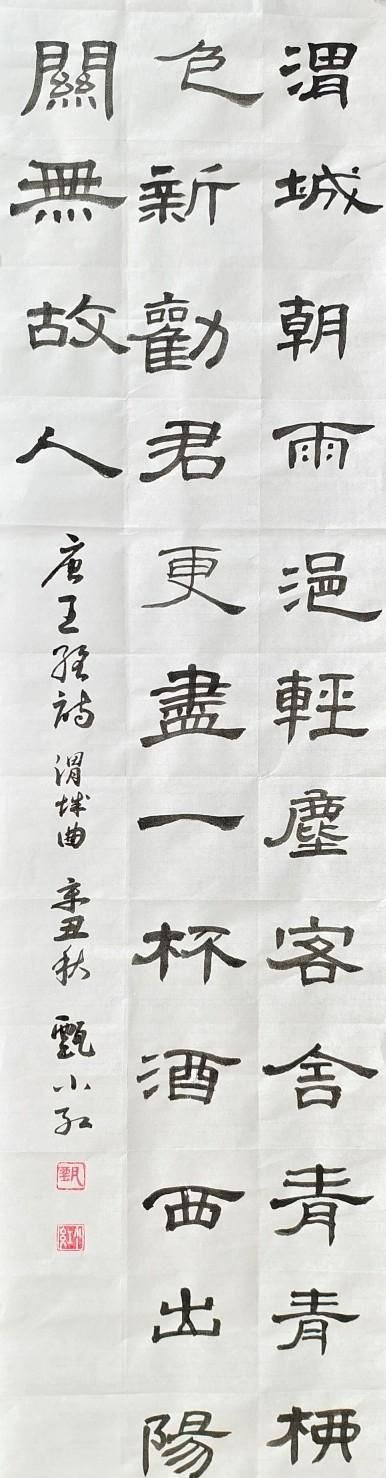 渭城朝雨浥輕塵客舍青青柳
色新勸君更盡一杯酒西出陽
關無故人
唐王維詩渭城曲辛丑秋甄小红